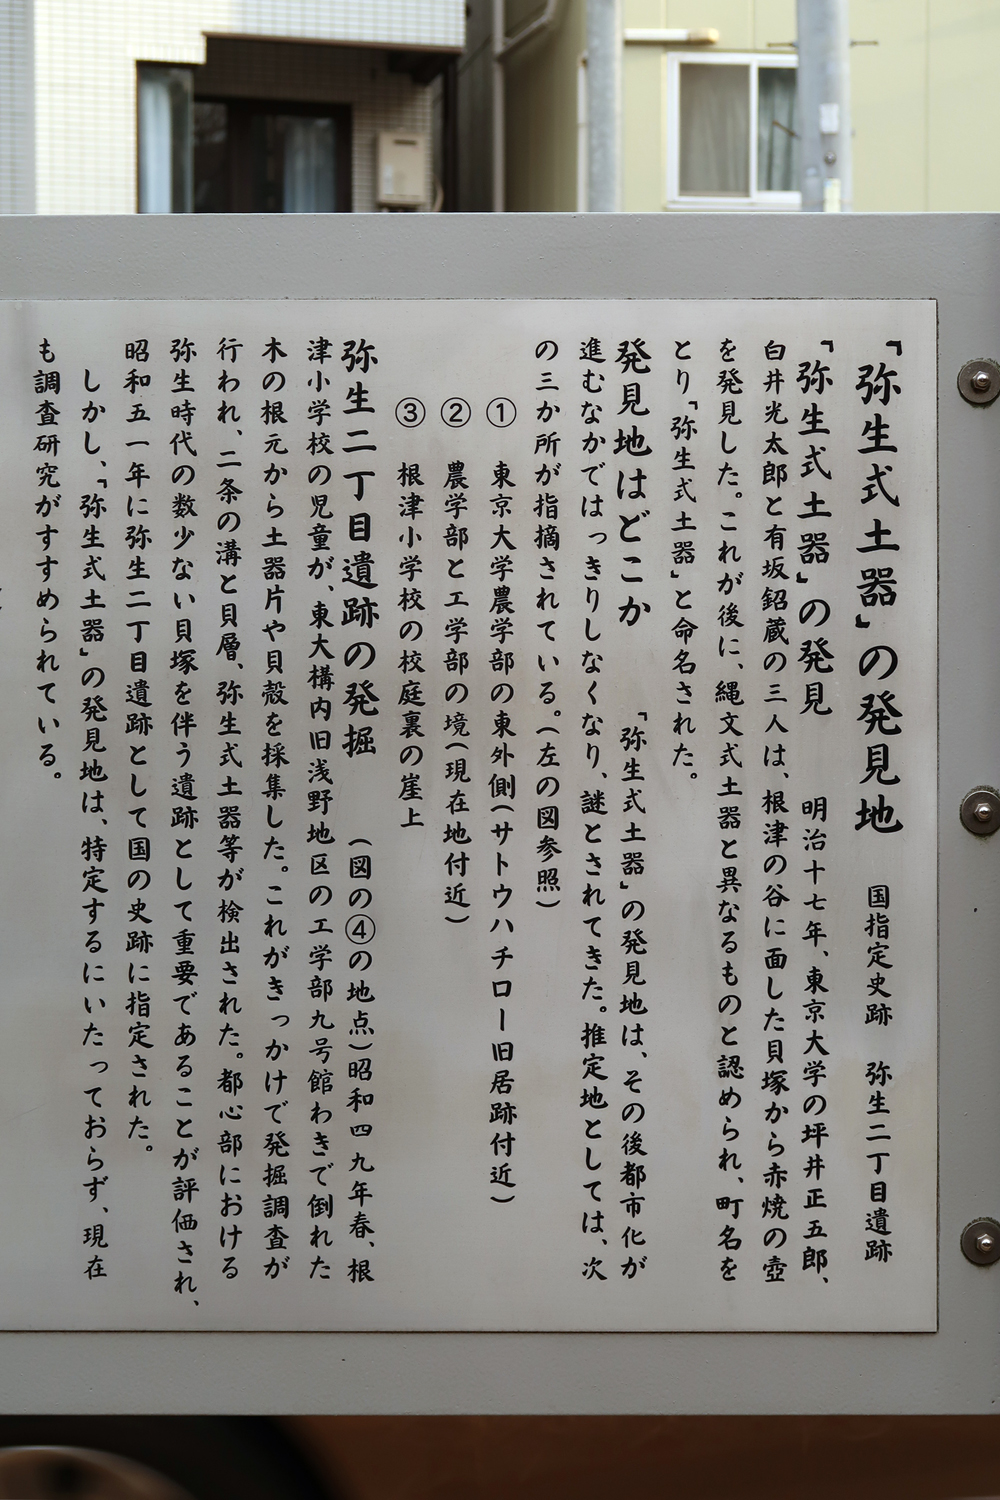 「弥生式土器」の発見地　国指定史跡　弥生二丁目遺跡
「弥生式土器」の発見　明治十七年、東京大学の坪井正五郎、
白井光太郎と有坂鉊蔵の三人は、根津の谷に面した貝塚から赤焼の壺
を発見した。これが後に、縄文式土器と異なるものと認められ、町名を
とり「弥生式土器」と命名された。
発見地はどこか　「弥生式土器」の発見地は、その後都市化が
進むなかではっきりしなくなり、謎とされてきた。推定地としては、次
の三か所が指摘されている。（左の図参照）
①　東京大学農学部の東外側（サトウハチロー旧居跡付近）
②　農学部と工学部の境（現在地付近）
③　根津小学校の校庭裏の崖上
弥生二丁目遺跡の発掘　（図の④の地点）昭和四九年春、根
津小学校の児童が、東大構内旧浅野地区の工学部九号館わきで倒れた
木の根元から土器片や貝殻を採集した。これがきっかけで発掘調査が
行われ、二条の溝と貝層、弥生式土器等が検出された。都心部における
弥生時代の数少ない貝塚を伴う遺跡として重要であることが評価され、
昭和五一年に弥生二丁目遺跡として国の史跡に指定された。
しかし、「弥生式土器」の発見地は、特定するにいたっておらず、現在
も調査研究がすすめられている。